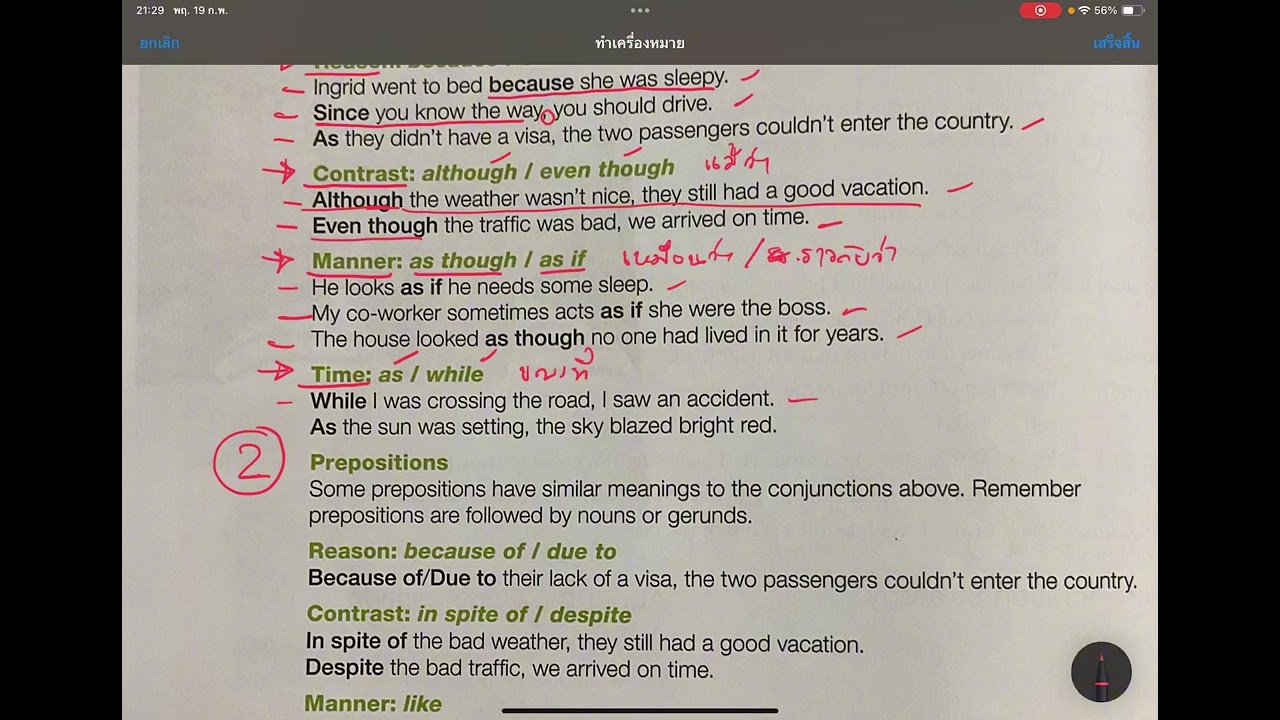 21:29 พฤ. 19 ก.พ.
56%
ยกเลิก
ทำเครื่องหมาย
เสร็จสิ้น
Reason: because
Ingrid went to bed because she was sleepy.
Since you know the way, you should drive.
As they didn't have a visa, the two passengers couldn't enter the country.
Contrast: although / even though แม้ว่า
Although the weather wasn't nice, they still had a good vacation.
Even though the traffic was bad, we arrived on time.
Manner: as though / as if เหมือนว่า / ราวกับว่า
He looks as if he needs some sleep.
My co-worker sometimes acts as if she were the boss.
The house looked as though no one had lived in it for years.
Time: as / while ขณะที่
While I was crossing the road, I saw an accident.
As the sun was setting, the sky blazed bright red.
2
Prepositions
Some prepositions have similar meanings to the conjunctions above. Remember
prepositions are followed by nouns or gerunds.
Reason: because of / due to
Because of/Due to their lack of a visa, the two passengers couldn't enter the country.
Contrast: in spite of / despite
In spite of the bad weather, they still had a good vacation.
Despite the bad traffic, we arrived on time.
Manner: like